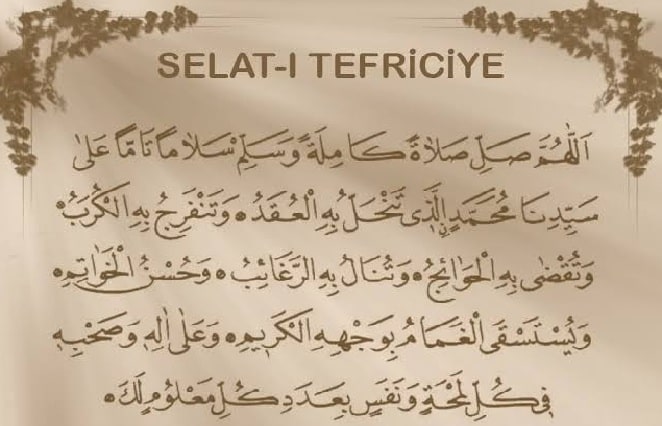 SELAT-I TEFRİCİYE
اَللّٰهُمَّ صَلِّ صَلَاةً كَامِلَةً وَسَلِّمْ سَلَامًا تَامًّا عَلٰى
سَيِّدِنَا مُحَمَّدٍ الَّذٖى تَنْحَلُّ بِهِ الْعُقَدُ ۞ وَتَنْفَرِجُ بِهِ الْكُرَبُ ۞
وَتُقْضٰى بِهِ الْحَوَائِجُ ۞ وَتُنَالُ بِهِ الرَّغَائِبُ ۞ وَحُسْنُ الْخَوَاتِمِ ۞
وَيُسْتَسْقَى الْغَمَامُ بِوَجْهِهِ الْكَرِيمِ ۞ وَعَلٰى اٰلِهٖ وَصَحْبِهٖ
فٖى كُلِّ لَمْحَةٍ وَنَفَسٍ بِعَدَدِ كُلِّ مَعْلُومٍ لَكَ ۞